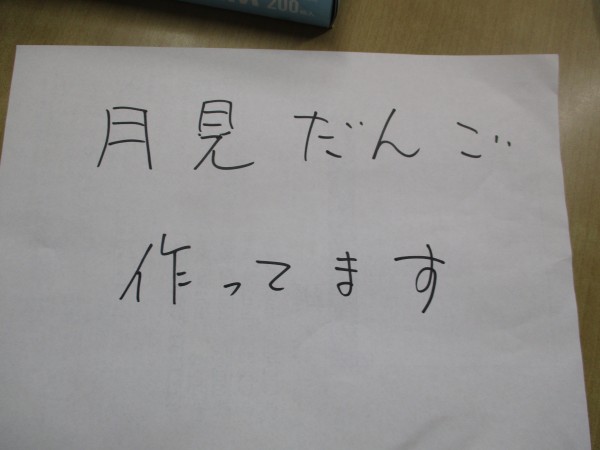 200
月見だんご
作ってます